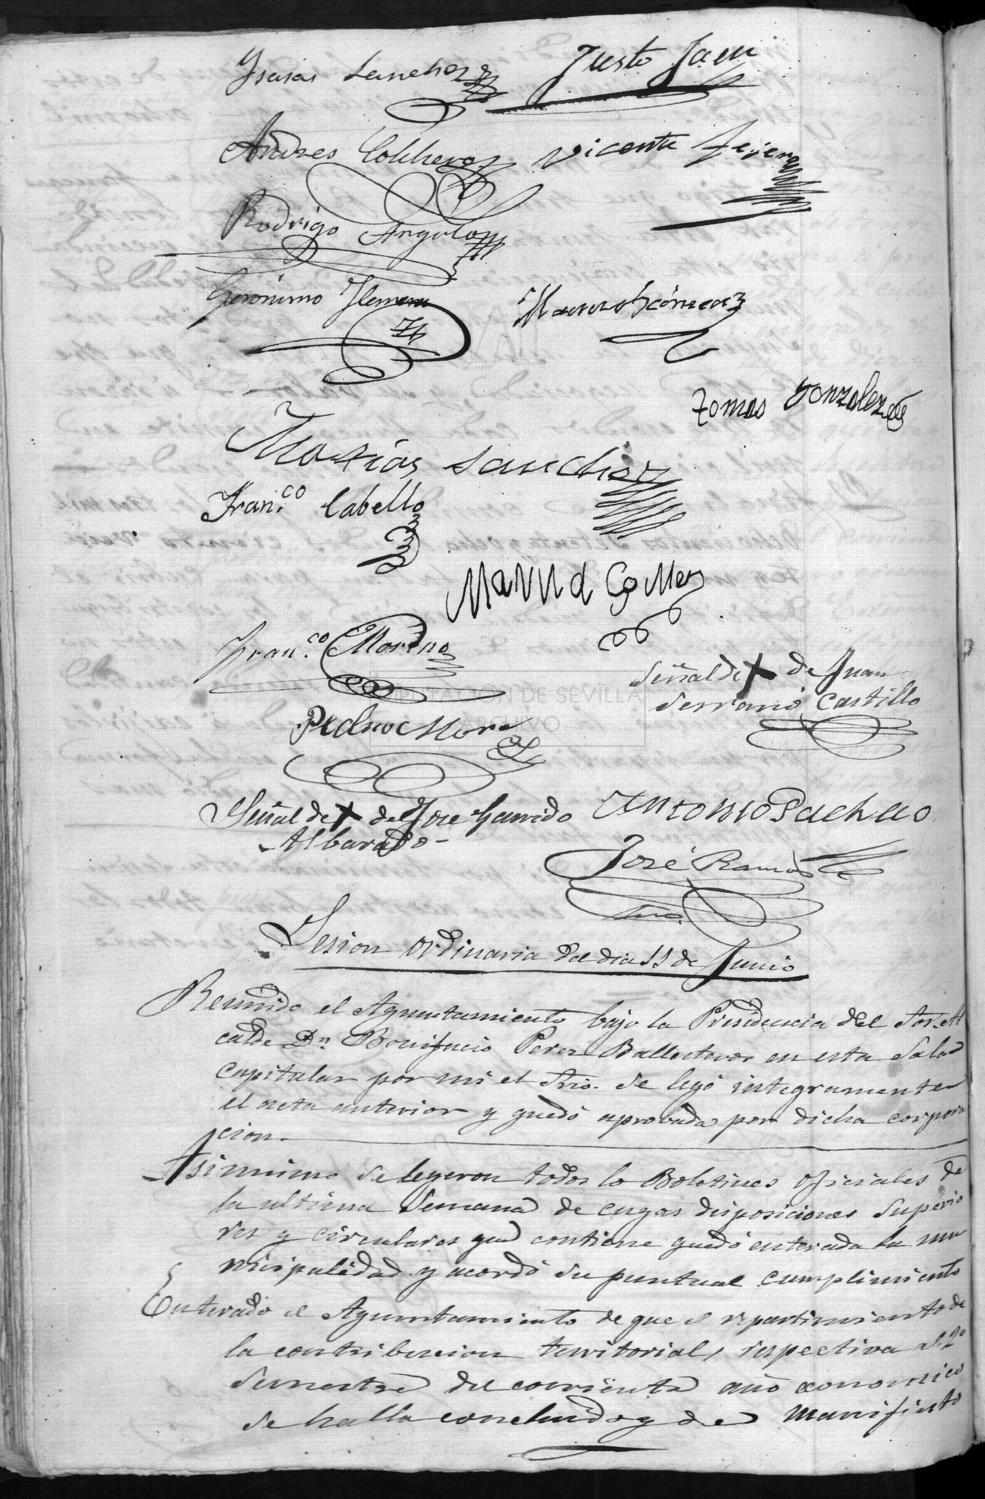 Ysaias Sanchez Justo Jaen
Andres Colchero Vicente Tejero
Rodrigo Angulo
Geronimo Herrera Marcos Gómez
tomas Gonzalez
Matias Sanchez
Fran.co Cabello
Manuel Gomez
Fran.co Moreno
Señal de + de Juan
Serrano Castillo
DIPUTACIÓN DE SEVILLA
ARCHIVO
Pedro Mora
Señal de + de Jose Garrido Antonio Pachao
Albarado-
José Ramos
Srio.
Sesion ordinaria del dia 11 de Junio
Reunido el Ayuntamiento bajo la Presidencia del Sor. Al
calde Dn. Bonifacio Perez Ballesteros en esta Sala
capitular por mi el Srio. se leyó integramente
el acta anterior y quedó aprobada por dicha corpora
cion.
Asimismo se leyeron todos lo Boletines oficiales de
la ultima Semana de cuyas disposiciones Superio
res y circulares que contiene quedó enterada la mu
nicipalidad y acordó su puntual cumplimiento
Enterado el Ayuntamiento de que el repartimiento de
la contribucion territorial, respectiva al 2o
Semestre del corriente año economico
se halla concluido y de manifiesto